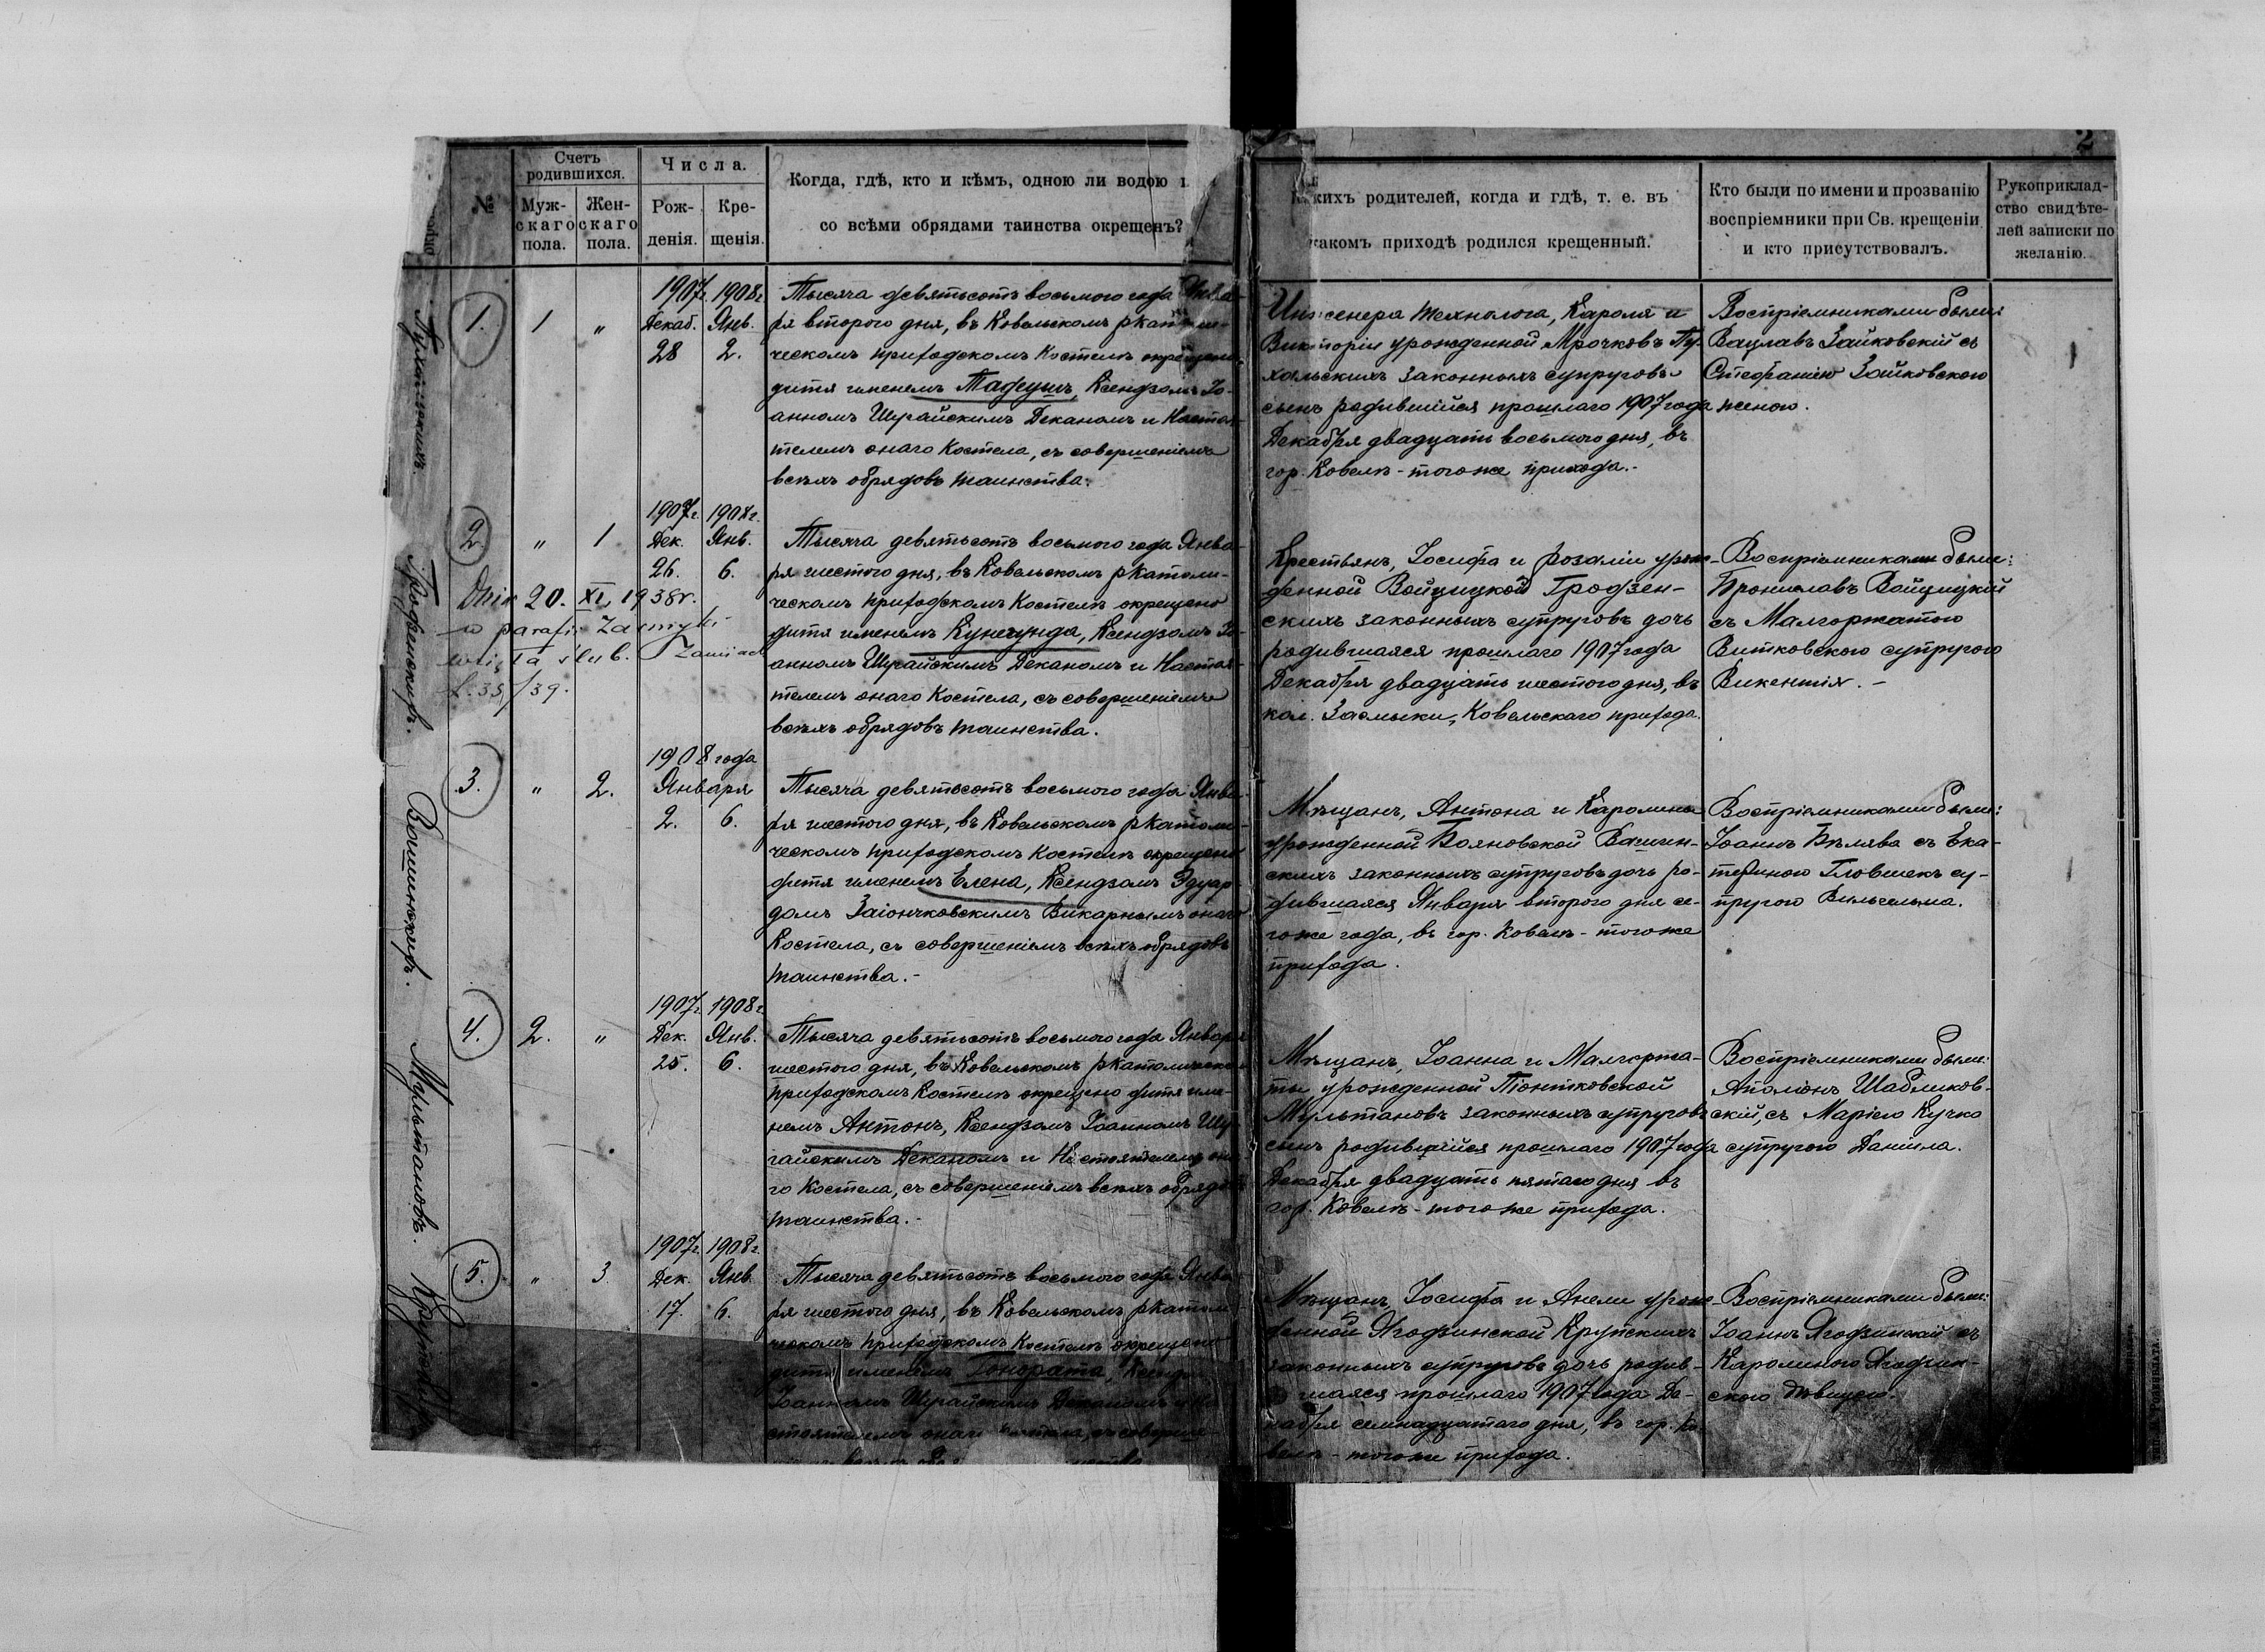 2
№
Счетъ родившихся.
Муж-
скаго
пола.
Жен-
скаго
пола.
Числа.
Рож-
денія.
Кре-
щенія.
Когда, гдѣ, кто и кѣмъ, одною ли водою
со всѣми обрядами таинства окрещенъ?
кихъ родителей, когда и гдѣ, т. е. въ
какомъ приходѣ родился крещенный.
Кто были по имени и прозванію
воспріемники при Св. крещеніи
и кто присутствовалъ.
Рукоприклад-
ство свидѣте-
лей записки по
желанію.
1.
1
"
1907г. 1908г.
Декаб. Янв.
28 2.
Тысяча девятьсотъ восьмого года Янва-
ря второго дня, въ Ковельскомъ ркатоли-
ческомъ приходскомъ Костелѣ окрещено
дитя именемъ Тадеушъ, Ксендзомъ Іо-
анномъ Шурайскимъ Деканомъ и Настоя-
телемъ онаго Костела, съ совершеніемъ
всѣхъ обрядовъ таинства.
Инженера технолога, Кароля и
Викторіи урожденной Мрочковъ Пу-
хальскихъ законныхъ супруговъ
сынъ родившійся прошлаго 1907 года
Декабря двадцать восьмого дня, въ
гор. Ковелѣ - того же прихода.-
Воспріемниками были:
Вацлавъ Зайковскій съ
Стефаніею Зайковскою
женою.
2
"
1
1907г. 1908г.
Дек. Янв.
26. 6.
Dnia 20. XI, 1938r.
w parafii Zasmyki
wzięła ślub.
Тысяча девятьсотъ восьмого года Янва-
ря шестого дня, въ Ковельскомъ ркатоли-
ческомъ приходскомъ Костелѣ окрещено
дитя именемъ Кунегунда, Ксендзомъ Іо-
анномъ Шурайскимъ Деканомъ и Настоя-
телемъ онаго Костела, съ совершеніемъ
всѣхъ обрядовъ таинства.
Крестьянъ, Іосифа и Розаліи урож-
денной Войцицкой Гродзен-
скихъ законныхъ супруговъ дочь
родившаяся прошлаго 1907 года
Декабря двадцать шестого дня, въ
кол. Засмыки, Ковельскаго прихода.
Воспріемниками были:
Брониславъ Войцицкій
съ Малгоржатою
Витковскою супругою
Викентія. -
Гродзенскихъ.
3.
"
2.
1908 года
Января
2. 6.
Тысяча девятьсотъ восьмого года Янва-
ря шестого дня, въ Ковельскомъ ркатоли-
ческомъ приходскомъ Костелѣ окрещено
дитя именемъ Елена, Ксендзомъ Эдуар-
домъ Заіончковскимъ Викарнымъ онаго
Костела, съ совершеніемъ всѣхъ обрядовъ
таинства.-
Мѣщанъ, Антона и Каролины
урожденной Бояновской Вашин-
скихъ законныхъ супруговъ дочь ро-
дившаяся Января второго дня се-
го же года, въ гор. Ковелѣ - того же
прихода.
Воспріемниками были:
Іоаннъ Бѣлява съ Ека-
териною Гловшекъ су-
пругою Вильгельма.
4.
2.
"
1907г. 1908г.
Дек. Янв.
25. 6.
Тысяча девятьсотъ восьмого года Января
шестого дня, въ Ковельскомъ ркатолическомъ
приходскомъ Костелѣ окрещено дитя име-
немъ Антонъ, Ксендзомъ Іоанномъ Шу-
райскимъ Деканомъ и Настоятелемъ она-
го Костела, съ совершеніемъ всѣхъ обрядовъ
таинства.-
Мѣщанъ, Іоанна и Малгоржа-
ты урожденной Піонтковской
Мультановъ законныхъ супруговъ
сынъ родившійся прошлаго 1907 года
Декабря двадцать пятаго дня въ
гор. Ковелѣ - того же прихода.
Воспріемниками были:
Аполіонъ Шабликов-
скій, съ Маріею Кучко
супругою Даніила.
Мультановъ.
5.
"
3.
1907г. 1908г.
Дек. Янв.
17. 6.
Тысяча девятьсотъ восьмого года Янва-
ря шестого дня, въ Ковельскомъ ркатоли-
ческомъ приходскомъ Костелѣ окрещено
дитя именемъ Гонората, Ксенд
Іоанномъ Шурайскимъ Деканомъ и На-
стоятелемъ онаго Костела, съ соверше-
Мѣщанъ, Іосифа и Анели урож-
денной Ягодзинской Крупскихъ
законныхъ супруговъ дочь родив-
шаяся прошлаго 1907 года Де-
кабря семнадцатаго дня, въ гор. Ко-
велѣ - того же прихода.
Воспріемниками были:
Іоаннъ Ягодзинскій съ
Каролиною Ягодзин-
скою дѣвицею.